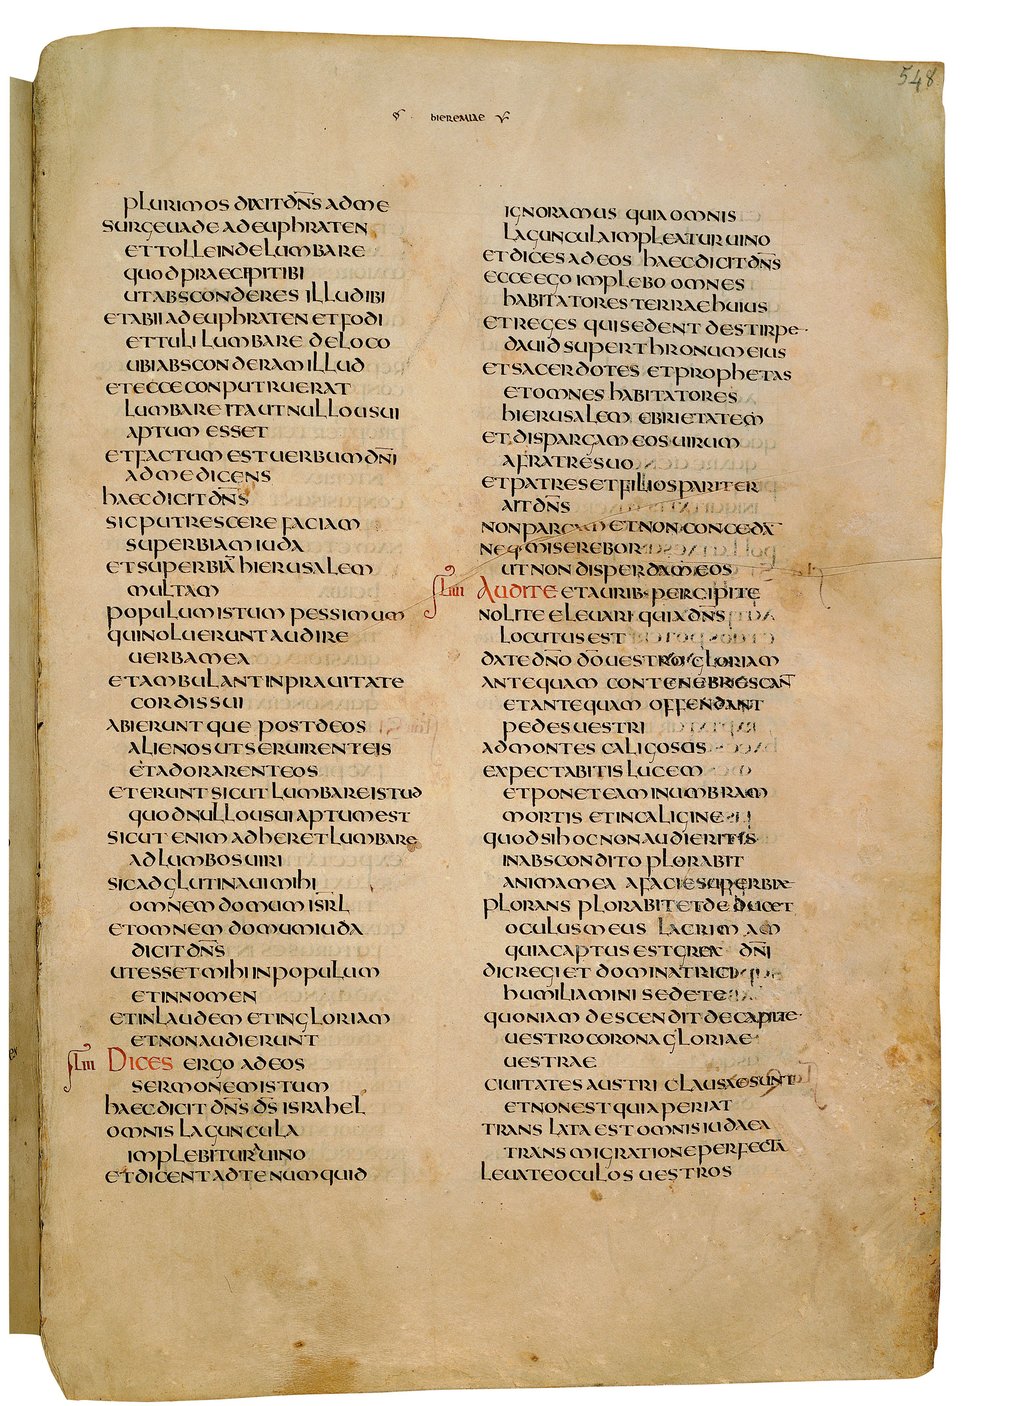 548
hieremiae
plurimos dixit dn̄s ad me
surge uade ad euphraten
et tolle inde lumbare
quod praecipi tibi
ut absconderes illud ibi
et abii ad euphraten et fodi
et tuli lumbare de loco
ubi absconderam illud
et ecce conputruerat
lumbare ita ut nullo usui
aptum esset
et factum est uerbum dn̄i
ad me dicens
haec dicit dn̄s
sic putrescere faciam
superbiam iuda
et superbiā hierusalem
multam
populum istum pessimum
qui noluerunt audire
uerba mea
et ambulant in prauitate
cordis sui
abierunt que post deos
alienos ut seruirent eis
et adorarent eos
et erunt sicut lumbare istud
quod nullo usui aptum est
sicut enim adheret lumbare
ad lumbos uiri
sic adglutinaui mihi
omnem domum isrl
et omnem domum iuda
dicit dn̄s
ut esset mihi in populum
et in nomen
et in laudem et in gloriam
et non audierunt
Liii Dices ergo ad eos
sermonem istum
haec dicit dn̄s d̄s israhel
omnis laguncula
implebitur uino
et dicent ad te numquid
ignoramus quia omnis
laguncula impleatur uino
et dices ad eos haec dicit dn̄s
ecce ego implebo omnes
habitatores terrae huius
et reges qui sedent de stirpe
dauid super thronum eius
et sacerdotes et prophetas
et omnes habitatores
hierusalem ebrietatem
et dispargam eos uirum
a fratre suo
et patres et filios pariter
ait dn̄s
non parcam et non concedā
neq· miserebor
ut non disperdam eos
Liiii Audite et auribus percipite
nolite eleuari quia dn̄s
locutus est
date dn̄o dō uestro gloriam
antequam contenebrescan̄
et antequam offendant
pedes uestri
ad montes caligosus
expectabitis lucem
et ponet eam in umbram
mortis et in caligine
quod si hoc non audieritis
in abscondito plorabit
anima mea a facie superbiae
plorans plorabit et deducet
oculus meus lacrimam
quia captus est grex dn̄i
dic regi et dominatrici
humiliamini sedete
quoniam descendit de capite
uestro corona gloriae
uestrae
ciuitates austri clausae sunt
et non est qui aperiat
translata est omnis iudaea
transmigratione perfecta
leuate oculos uestros